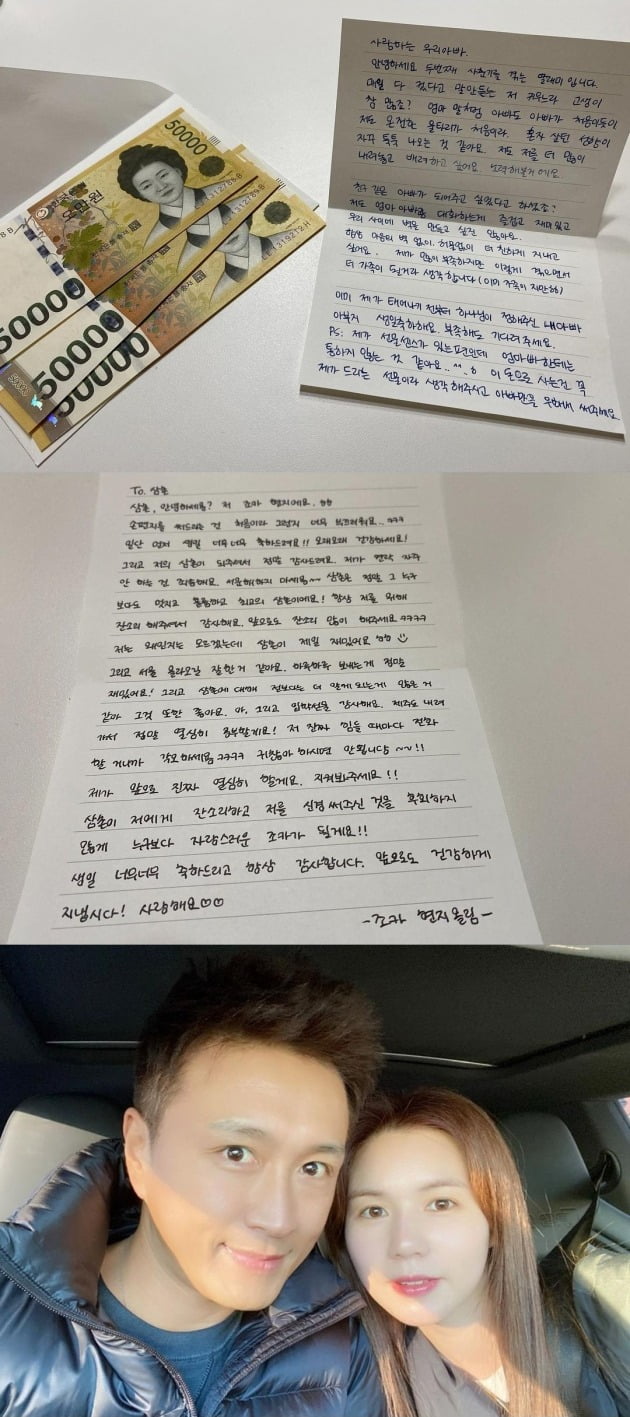 50000
한국은행
오만원
50000
50000
50000
사랑하는 우리아빠.
안녕하세요 두번째 사춘기를 겪는 딸래미입니다.
매일 다 컸다고 말만듣는 저 키우느라 고생이
참 많죠? 엄마 말처럼 아빠도 아빠가 처음이듯이
저도 온전한 울타리가 처음이라. 혼자 살던 성향이
자꾸 툭툭 나오는 것 같아요. 저도 저를 더 많이
내려놓고 배려하고 싶어요. 노력해볼거에요
친구 같은 아빠가 되어주고 싶었다고 하셨죠?
저도 엄마아빠랑 대화하는게 즐겁고 재미있고
우리 사이에 벽을 만들고 싶진 않아요.
항상 마음의 벽 없이. 허물없이 더 친하게 지내고
싶어요. 제가 많이 부족하지만 이렇게 겪으면서
더 가족이 될거라 생각합니다 (이미 가족이지만ㅎㅎ)
이미 제가 태어나기 전부터 하나님이 정해주신 내아빠
아부지 생일축하해요. 부족해도 기다려주세요.
PS: 제가 선물센스가 있는편인데 엄마빠한테는
통하지 않는 것 같아요.. ^^.. ㅎ 이 돈으로 사는건 꼭
제가 드리는 선물이라 생각해주시고 아빠만을 위해서 써주세요.
To. 삼촌
삼촌, 안녕하세용? 저 조카 현지에요. ㅎㅎ
손편지를 써드리는 건 처음이라 그런지 너무 부끄러워요.. ㅋㅋㅋ
일단 먼저 생일 너무너무 축하드려요!! 오래오래 건강하세요!
그리고 저의 삼촌이 되주셔서 정말 감사드려요. 제가 연락 자주
안 하는 건 죄송해요. 서운해하지 마세요~ 삼촌은 정말 그 누구
보다도 멋지고 훌륭하고 최고의 삼촌이에요! 항상 저를 위해
잔소리 해주셔서 감사해요. 앞으로도 잔소리 많이 해주세요 ㅋㅋㅋㅋ
저는 왜인지는 모르겠는데 삼촌이 제일 재밌어요 ㅎㅎ
그리고 서울 올라오길 잘한거 같아요. 하루하루 보내는게 정말
재밌어요! 그리고 삼촌에 대해 전보다는 더 알게 되는게 많은 거
같아 그것 또한 좋아요. 아, 그리고 입학선물 감사해요. 제주도 내려
가서 정말 열심히 공부할게요! 저 진짜 힘들 때마다 전화
할 거니까 각오하세용 ㅋㅋㅋㅋ 귀찮아 하시면 안됩니당 ~~!!
제가 앞으로 진짜 열심히 할게요. 지켜봐주세요!!
삼촌이 저에게 잔소리하고 저를 신경써주신 것을 후회하지
않게 누구보다 자랑스러운 조카가 될게요!!
생일 너무너무 축하드리고 항상 감사합니다. 앞으로도 건강하게
지냅시다! 사랑해요♡♡
-조카 현지올림-